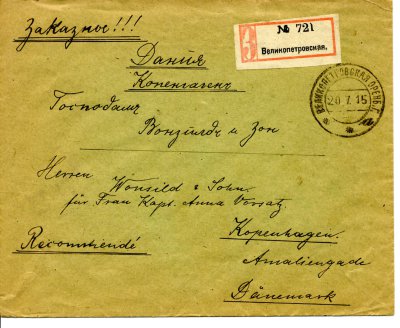 Заказное!!!
№ 721
Великопетровская.
Дания
Копенгагенъ
ВЕЛИКОПЕТРОВСКАЯ ОРЕНБ.
20 7 15
Господамъ
Вонзильдъ и Зон
Herren Wonsild & Sohn.
für Frau Kapt. Anna Vorsatz
Recommendé
Kopenhagen.
Amaliengade
Dänemark